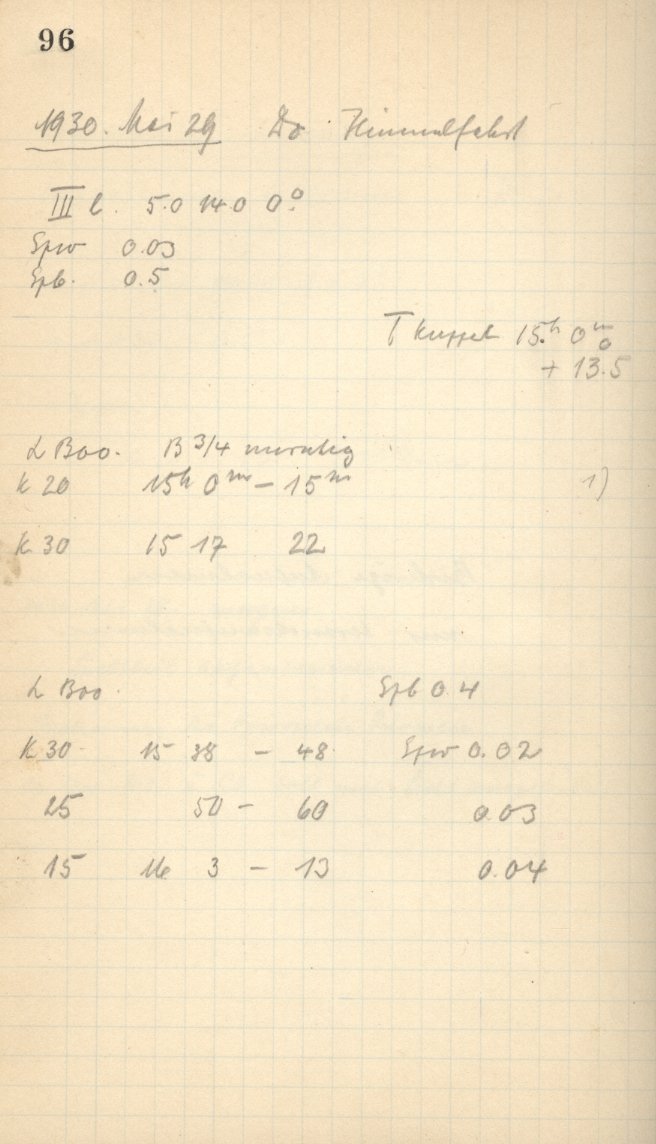 96
1930. Mai 29 Do Himmelfahrt
III b. 5.0 14.0 0.0
Spw 0.03
Spb. 0.5
T Kuppel 15h 0m
+ 13.5
α Boo. B 3/4 unruhig
K 20 15h 0m – 15m 1)
K 30 15 17 22
α Boo. Spb 0.4
K 30 15 38 – 48 Spw 0.02
25 50 – 60 0.03
15 16 3 – 13 0.04